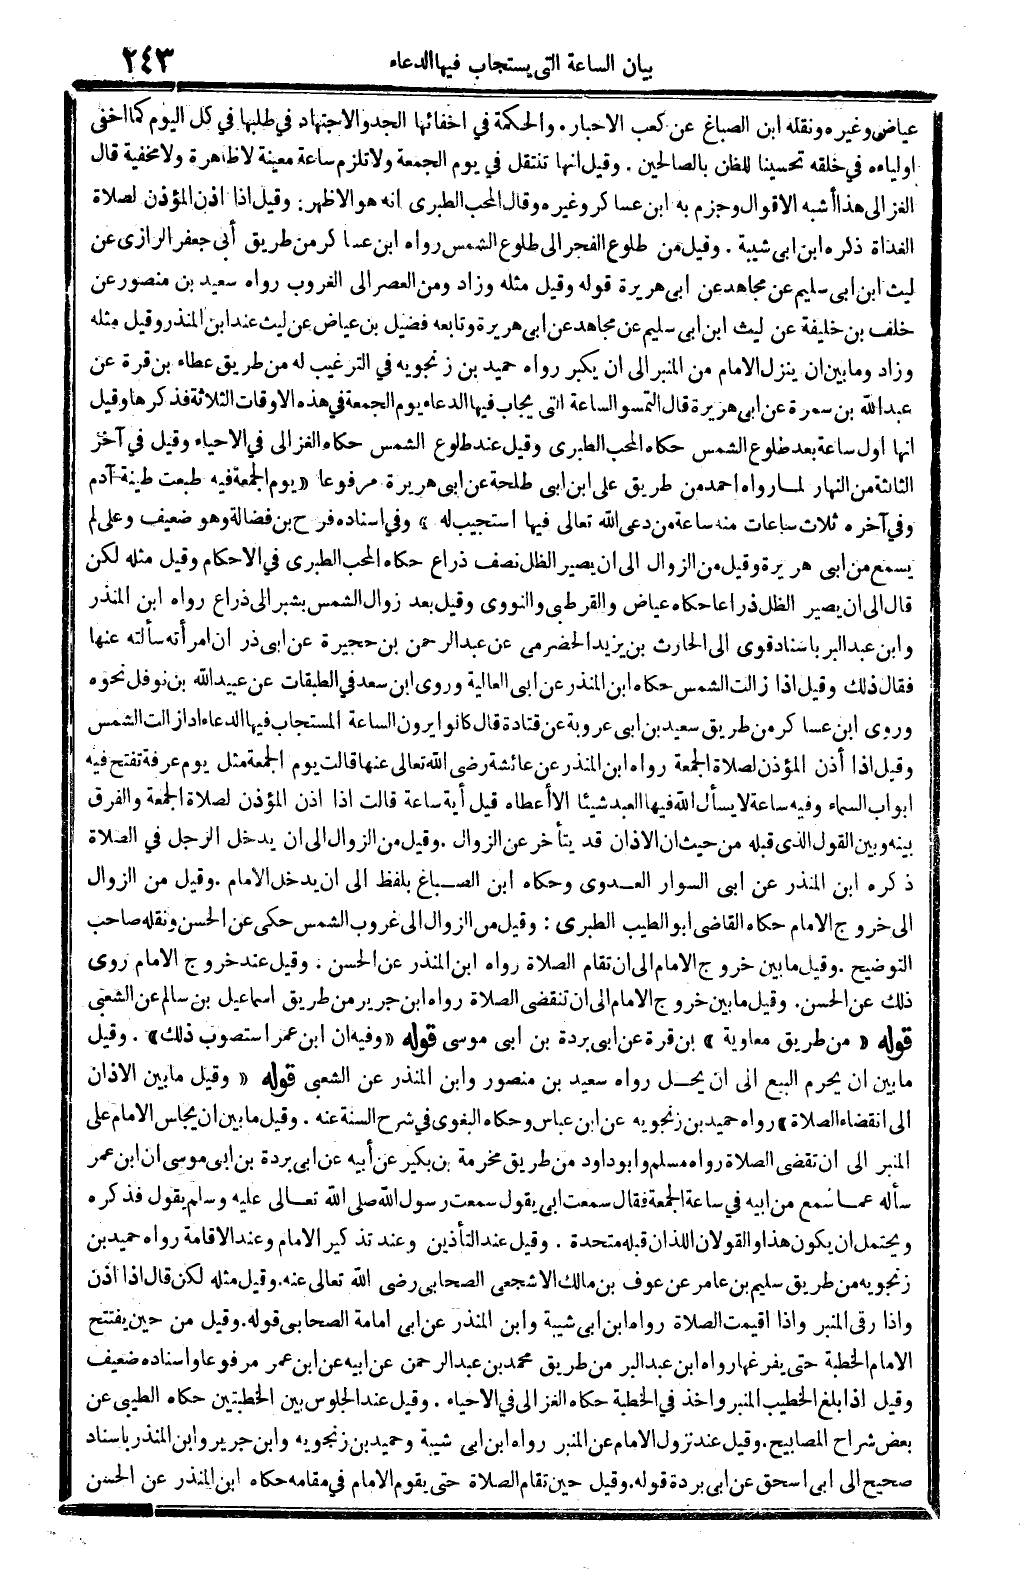 بيان الساعة التى يستجاب فيها الدعاء ٢٤٣
عياض وغيره ونقله ابن الصباغ عن كعب الاحبار . والحكمة في اخفائها الجد والاجتهاد في طلبها في كل اليوم كما اخفى
اولياءه في خلقه تحسينا للظن بالصالحين . وقيل انها تنتقل في يوم الجمعة ولا تلزم ساعة معينة لا ظاهرة ولا مخفية قال
الغزالى هذا أشبه الاقوال وجزم به ابن عساكر وغيره وقال المحب الطبرى انه هو الاظهر : وقيل اذا اذن المؤذن لصلاة
الغداة ذكره ابن ابى شيبة . وقيل من طلوع الفجر الى طلوع الشمس رواه ابن عساكر من طريق أبى جعفر الرازى عن
ليث ابن ابى سليم عن مجاهد عن ابى هريرة قوله وقيل مثله وزاد ومن العصر الى الغروب رواه سعيد بن منصور عن
خلف بن خليفة عن ليث ابن ابى سليم عن مجاهد عن ابى هريرة وتابعه فضيل بن عياض عن ليث عند ابن المنذر وقيل مثله
وزاد وما بين ان ينزل الامام من المنبر الى ان يكبر رواه حميد بن زنجويه في الترغيب له من طريق عطاء بن قرة عن
عبدالله بن سمرة عن ابى هريرة قال التمسوا الساعة التى يجاب فيها الدعاء يوم الجمعة في هذه الاوقات الثلاثة فذكرها وقيل
انها اول ساعة بعد طلوع الشمس حكاه المحب الطبرى وقيل عند طلوع الشمس حكاه الغزالى في الاحياء وقيل في آخر
الثالثة من النهار لما رواه احمد من طريق على ابن ابى طلحة عن ابى هريرة مرفوعا « يوم الجمعة فيه طبعت طينة آدم
وفي آخره ثلاث ساعات منه ساعة من دعى الله تعالى فيها استجيب له » وفي اسناده فرج بن فضالة وهو ضعيف وعلى لم
يسمع من ابى هريرة وقيل من الزوال الى ان يصير الظل نصف ذراع حكاه المحب الطبرى في الاحكام وقيل مثله لكن
قال الى ان يصير الظل ذراعا حكاه عياض والقرطبى والنووى وقيل بعد زوال الشمس بشبر الى ذراع رواه ابن المنذر
وابن عبدالبر باسناد قوى الى الحارث بن يزيد الحضرمى عن عبدالرحمن بن حجيرة عن ابى ذر ان امرأته سألته عنها
فقال ذلك وقيل اذا زالت الشمس حكاه ابن المنذر عن ابى العالية وروى ابن سعد في الطبقات عن عبيدالله بن نوفل نحوه
وروى ابن عساكر من طريق سعيد بن ابى عروبة عن قتادة قال كانوا يرون الساعة المستجاب فيها الدعاء اذا زالت الشمس
وقيل اذا أذن المؤذن لصلاة الجمعة رواه ابن المنذر عن عائشة رضى الله تعالى عنها قالت يوم الجمعة مثل يوم عرفة تفتح فيه
ابواب السماء وفيه ساعة لا يسأل الله فيها العبد شيئا الا أعطاه قيل أية ساعة قالت اذا اذن المؤذن لصلاة الجمعة والفرق
بينه وبين القول الذى قبله من حيث ان الاذان قد يتأخر عن الزوال . وقيل من الزوال الى ان يدخل الرجل في الصلاة
ذكره ابن المنذر عن ابى السوار العدوى وحكاه ابن الصباغ بلفظ الى ان يدخل الامام . وقيل من الزوال
الى خروج الامام حكاه القاضى ابو الطيب الطبرى : وقيل من الزوال الى غروب الشمس حكى عن الحسن ونقله صاحب
التوضيح . وقيل ما بين خروج الامام الى ان تقام الصلاة رواه ابن المنذر عن الحسن . وقيل عند خروج الامام روى
ذلك عن الحسن. وقيل ما بين خروج الامام الى ان تنقضى الصلاة رواه ابن جرير من طريق اسماعيل بن سالم عن الشعبى
قوله « من طريق معاوية » بن قرة عن ابى بردة بن ابى موسى قوله « وفيه ان ابن عمر استصوب ذلك » . وقيل
ما بين ان يحرم البيع الى ان يحل رواه سعيد بن منصور وابن المنذر عن الشعبى قوله « وقيل ما بين الاذان
الى انقضاء الصلاة » رواه حميد بن زنجويه عن ابن عباس وحكاه البغوى في شرح السنة عنه . وقيل ما بين ان يجلس الامام على
المنبر الى ان تقضى الصلاة رواه مسلم وابو داود من طريق مخرمة بن بكير عن أبيه عن ابى بردة بن ابى موسى ان ابن عمر
سأله عما سمع من ابيه في ساعة الجمعة فقال سمعت ابى يقول سمعت رسول الله صلى الله تعالى عليه وسلم يقول فذكره
ويحتمل ان يكون هذا والقولان اللذان قبله متحدة . وقيل عند التأذين وعند تذكير الامام وعند الاقامة رواه حميد بن
زنجويه من طريق سليم بن عامر عن عوف بن مالك الاشجعى الصحابى رضى الله تعالى عنه. وقيل مثله لكن قال اذا اذن
واذا رقى المنبر واذا اقيمت الصلاة رواه ابن ابى شيبة وابن المنذر عن ابى امامة الصحابى قوله. وقيل من حين يفتتح
الامام الخطبة حتى يفرغها رواه ابن عبدالبر من طريق محمد بن عبدالرحمن عن ابيه عن ابن عمر مرفوعا واسناده ضعيف
وقيل اذا بلغ الخطيب المنبر واخذ في الخطبة حكاه الغزالى في الاحياء . وقيل عند الجلوس بين الخطبتين حكاه الطيبى عن
بعض شراح المصابيح. وقيل عند نزول الامام عن المنبر رواه ابن ابى شيبة وحميد بن زنجويه وابن جرير وابن المنذر باسناد
صحيح الى ابى اسحق عن ابى بردة قوله. وقيل حين تقام الصلاة حتى يقوم الامام في مقامه حكاه ابن المنذر عن الحسن